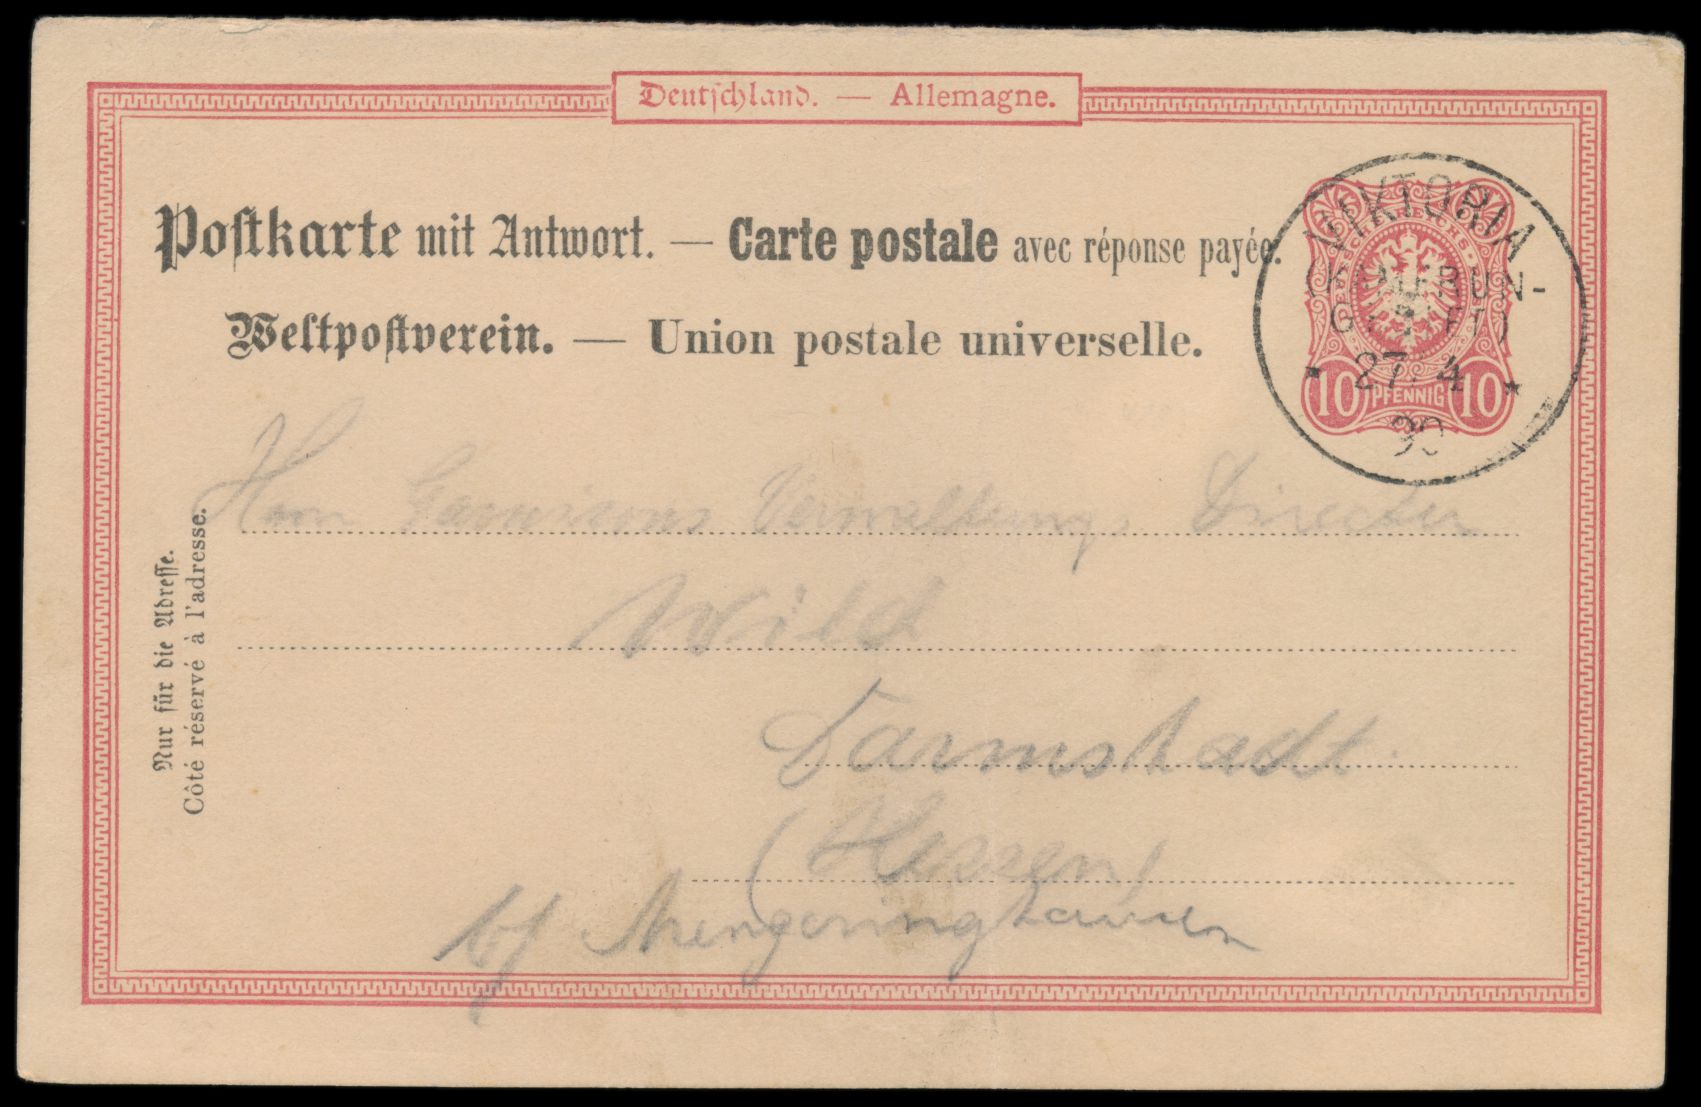 Deutschland. — Allemagne.
Postkarte mit Antwort. — Carte postale avec réponse payée.
Weltpostverein. — Union postale universelle.
VIKTORIA
(KAMERUN-
GEBIET)
27 4
90
DEUTSCHE REICHS-POST
10 PFENNIG 10
Nur für die Adresse.
Côté réservé à l'adresse.
Herrn Garnisons Verwaltungs Director
Wild
Darmstadt.
(Hessen)
Mengeringhausen